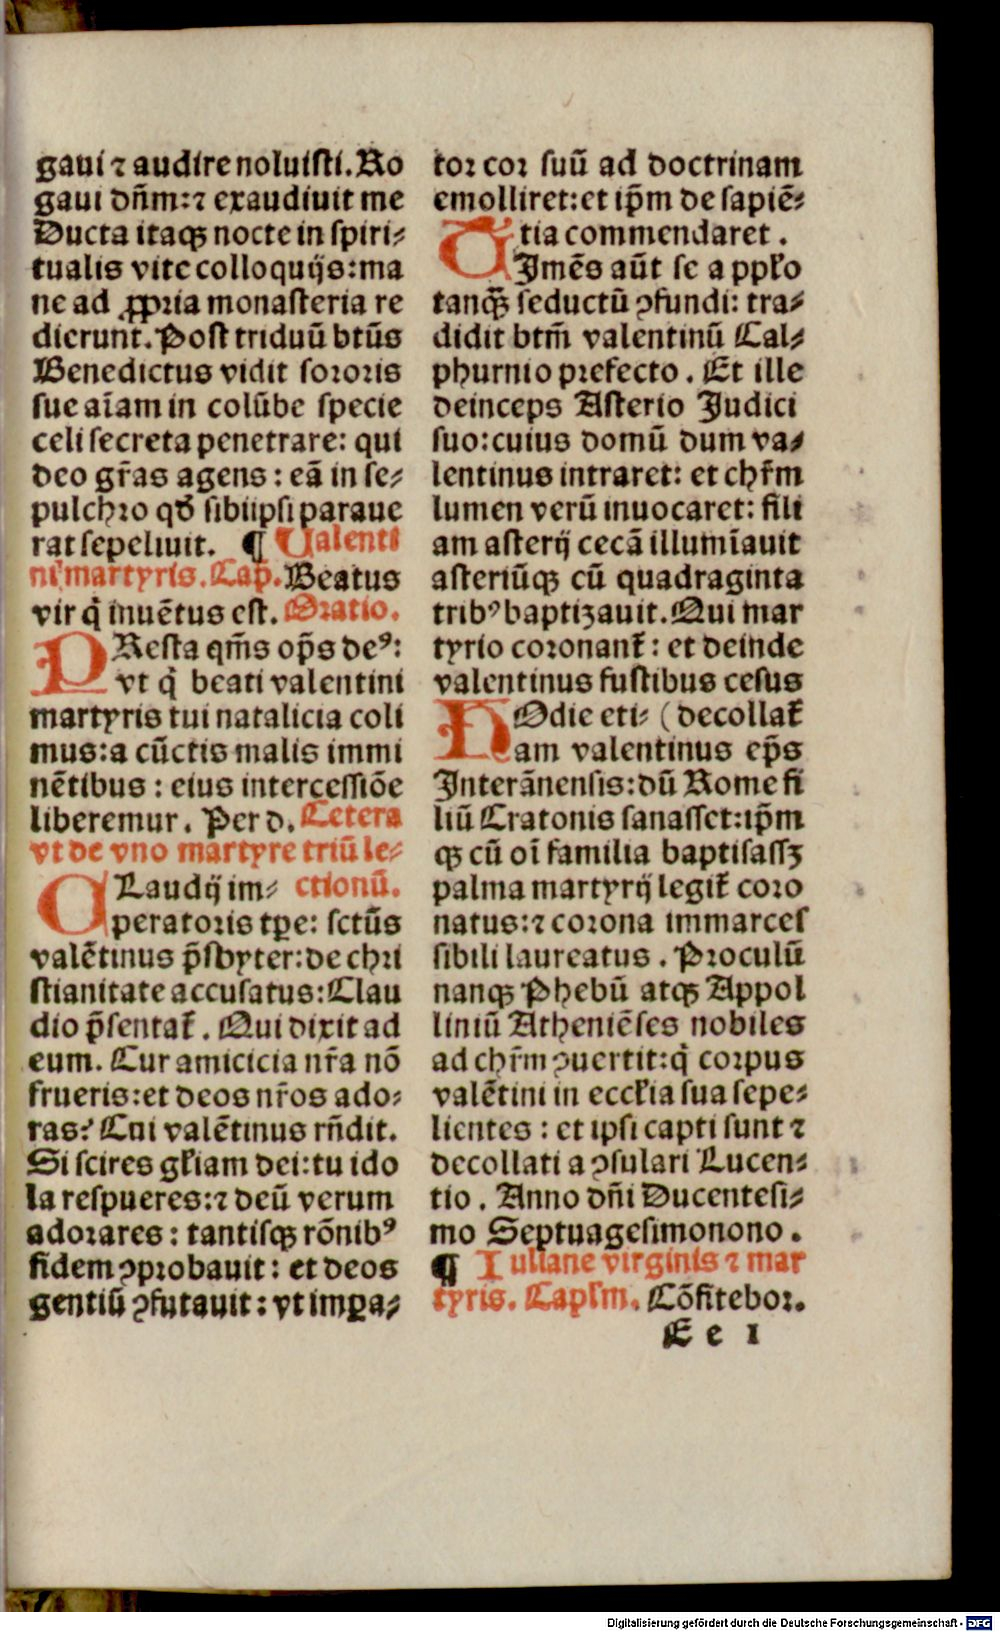 gaui ⁊ audire noluisti. Ro
gaui dn̄m:⁊ exaudiuit me
Ducta itaqꝫ nocte in spiri⸗
tualis vite colloquijs:ma
ne ad ꝓpria monasteria re
dierunt. Post triduū btūs
Benedictus vidit sororis
sue aīam in colūbe specie
celi secreta penetrare: qui
deo gr̄as agens: eā in se⸗
pulchro qđ sibiipsi paraue
rat sepeliuit. ¶ Ualenti
ni martyris. Cap. Beatus
vir q̇ inuētus est. Oratio.
PResta qm̄s op̄s deꝰ:
vt q̇ beati valentini
martyris tui natalicia coli
mus:a cūctis malis immi
nētibus: eius intercessiōe
liberemur. Per d. Cetera
vt de vno martyre triū le⸗
CLaudij im⸗ ctionū.
peratoris tꝑe: sctūs
valētinus p̄sbyter:de chri
stianitate accusatus:Clau
dio p̄sentat̄. Qui dixit ad
eum. Cur amicicia nr̄a nō
frueris:et deos nr̄os ado⸗
ras? Cui valētinus rn̄dit.
Si scires gl̄iam dei:tu ido
la respueres:⁊ deū verum
adorares: tantisqꝫ rōnibꝰ
fidem ꝯprobauit: et deos
gentiū ꝯfutauit: vt imꝑa⸗
tor cor suū ad doctrinam
emolliret:et ip̄m de sapiē⸗
tia commendaret.
TImēs aūt se a ppl̄o
tanqꝫ̄ seductū ꝯfundi: tra⸗
didit btm̄ valentinū Cal⸗
phurnio prefecto. Et ille
deinceps Asterio Judici
suo:cuius domū dum va⸗
lentinus intraret: et chr̄m
lumen verū inuocaret: fili
am asterij cecā illumīauit
asteriūqꝫ cū quadraginta
tribꝰ baptizauit. Qui mar
tyrio coronant̄: et deinde
valentinus fustibus cesus
HOdie eti⸗ (decollat̄
am valentinus ep̄s
Interānensis:dū Rome fi
liū Cratonis sanasset:ip̄m
qꝫ cū oī familia baptisassꝫ
palma martyrij legit̄ coro
natus:⁊ corona immarces
sibili laureatus. Proculū
nanqꝫ Phebū atqꝫ Appol
liniū Atheniēses nobiles
ad chr̄m ꝯuertit:q̇ corpus
valētini in eccl̄ia sua sepe⸗
lientes: et ipsi capti sunt ⁊
decollati a ꝯsulari Lucen⸗
tio. Anno dn̄i Ducentesi⸗
mo Septuagesimonono.
¶ Iuliane virginis ⁊ mar
tyris. Capl̄m. Cōfitebor.
E e 1
Digitalisierung gefördert durch die Deutsche Forschungsgemeinschaft - DFG